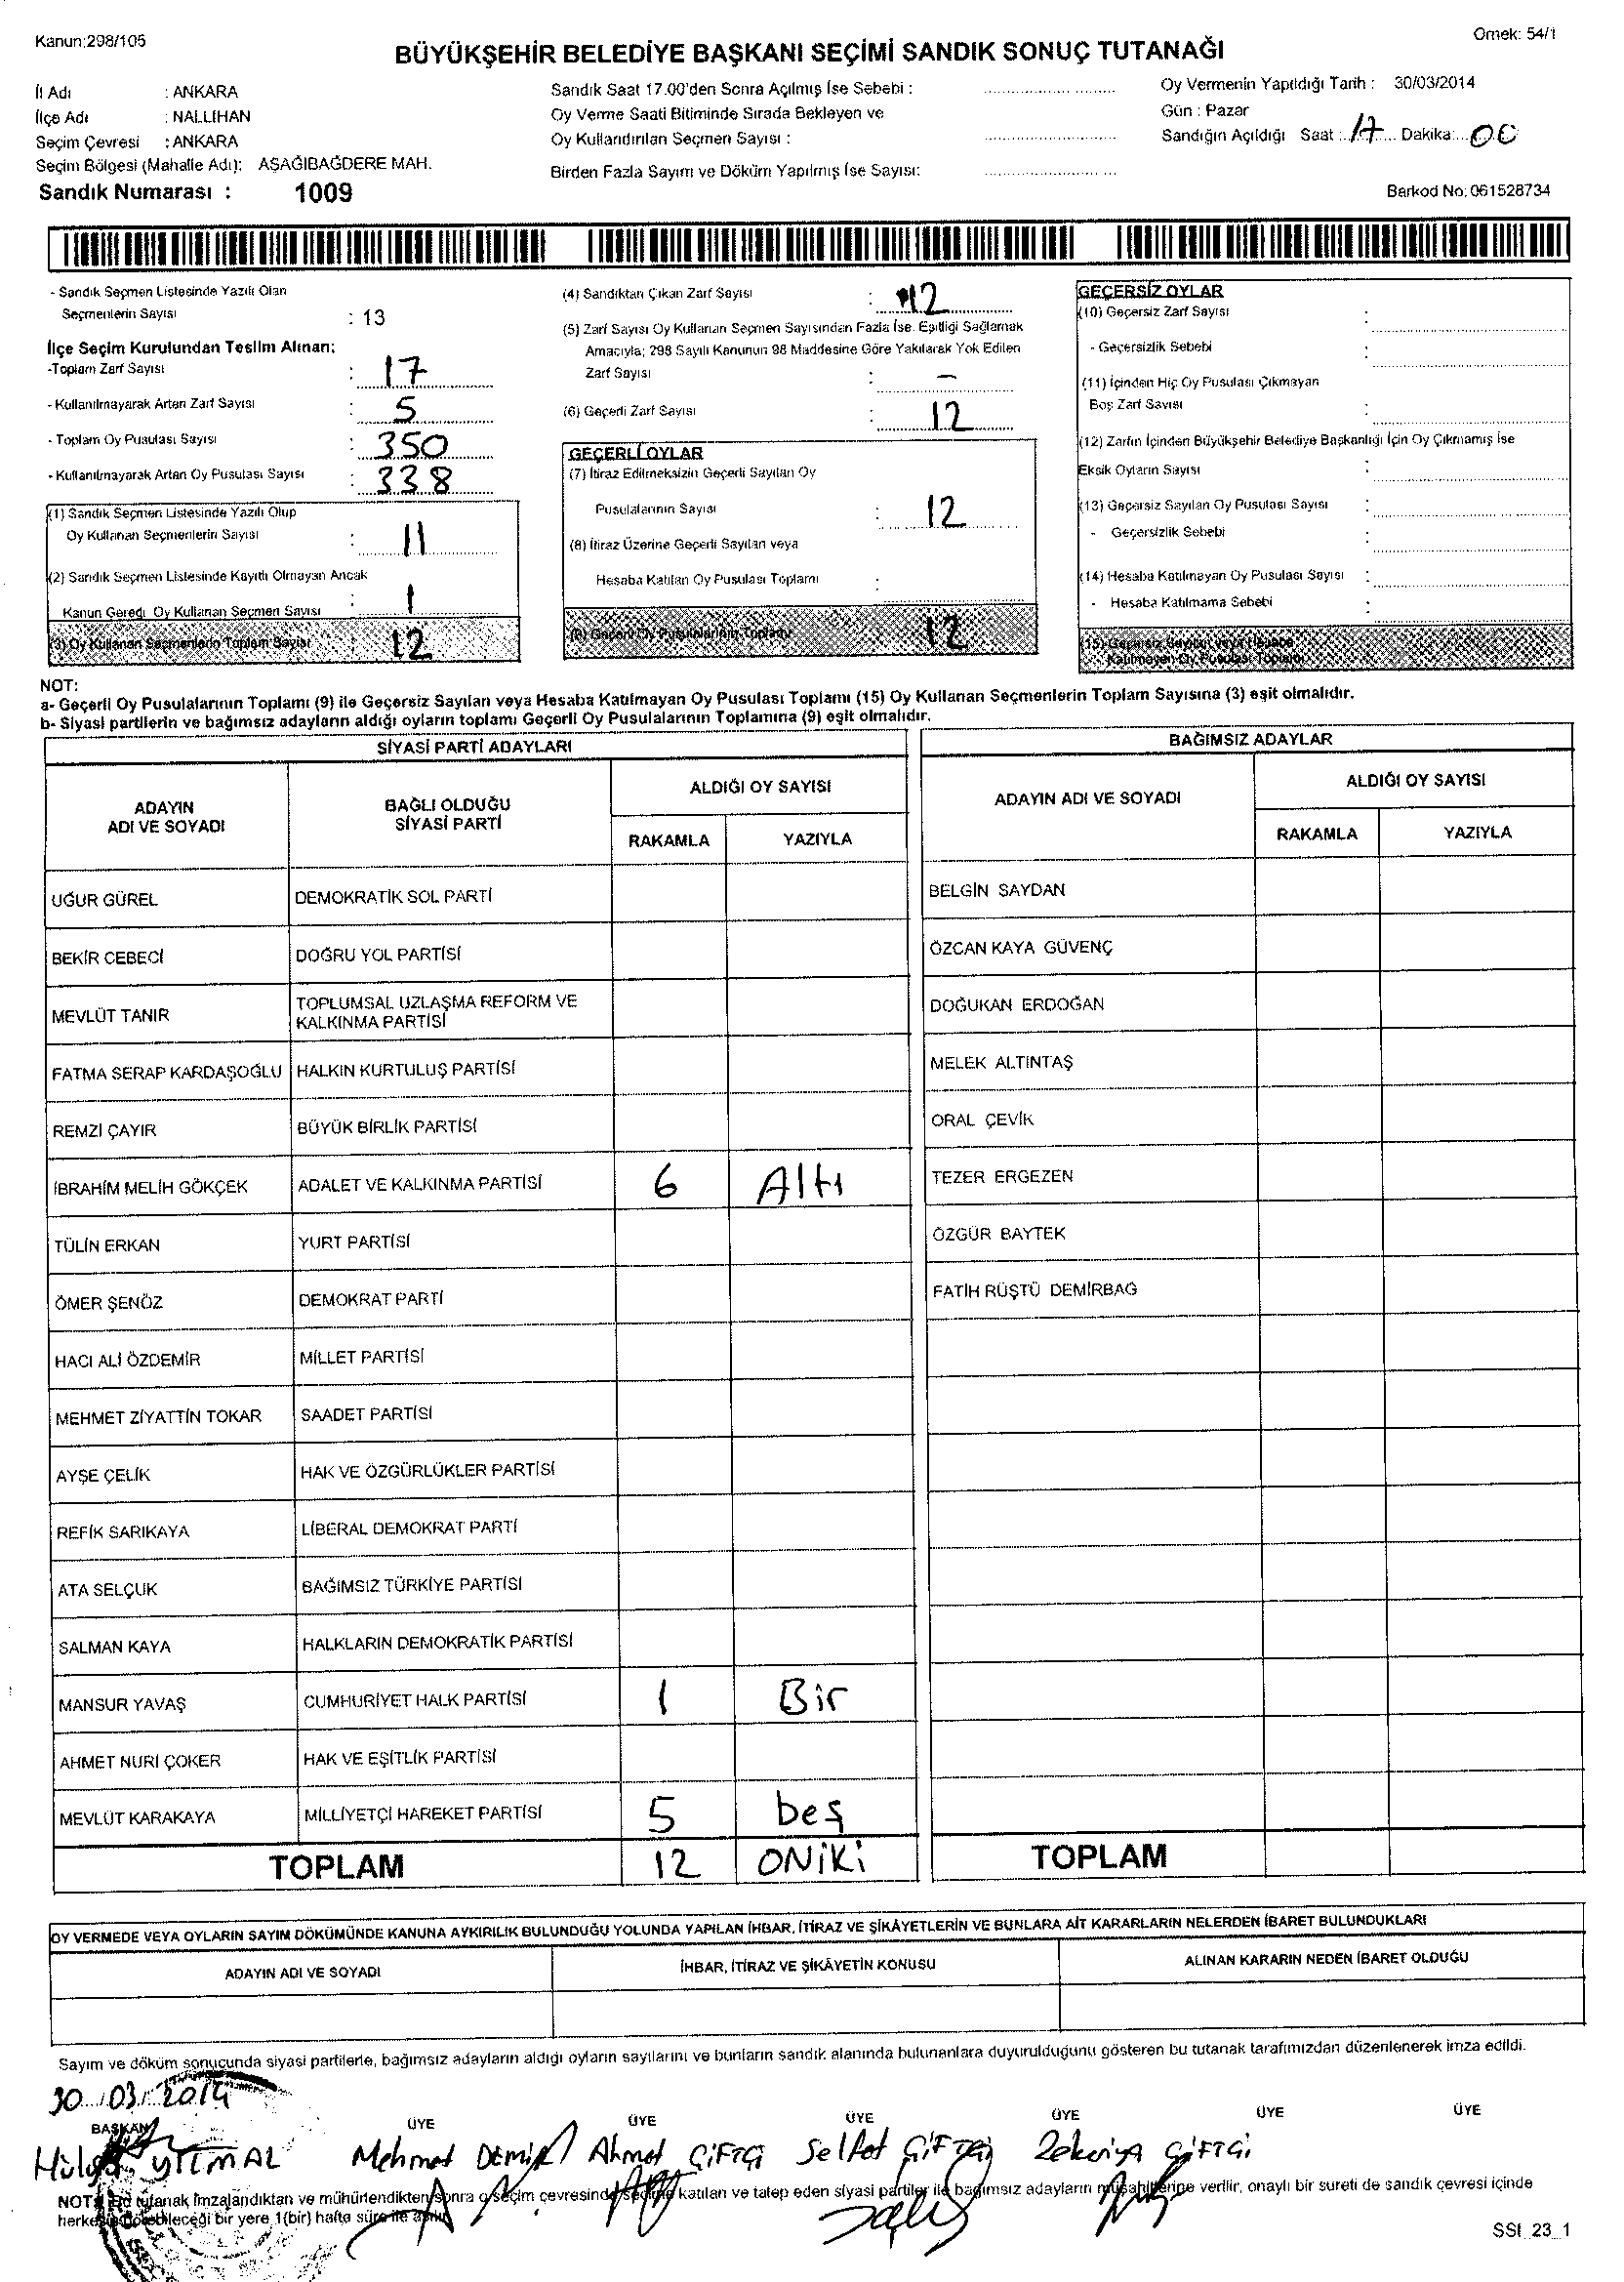 Kanun:298/105
Örnek: 54/1
BÜYÜKŞEHİR BELEDİYE BAŞKANI SEÇİMİ SANDIK SONUÇ TUTANAĞI
İl Adı : ANKARA
İlçe Adı : NALLIHAN
Seçim Çevresi : ANKARA
Seçim Bölgesi (Mahalle Adı): AŞAĞIBAĞDERE MAH.
Sandık Numarası : 1009
Sandık Saat 17.00'den Sonra Açılmış İse Sebebi :
Oy Verme Saati Bitiminde Sırada Bekleyen ve
Oy Kullandırılan Seçmen Sayısı :
Birden Fazla Sayım ve Döküm Yapılmış İse Sayısı:
Oy Vermenin Yapıldığı Tarih : 30/03/2014
Gün : Pazar
Sandığın Açıldığı Saat : 17 Dakika: 00
Barkod No: 061528734
- Sandık Seçmen Listesinde Yazılı Olan
Seçmenlerin Sayısı : 13
İlçe Seçim Kurulundan Teslim Alınan:
-Toplam Zarf Sayısı : 17
- Kullanılmayarak Artan Zarf Sayısı : 5
- Toplam Oy Pusulası Sayısı : 350
- Kullanılmayarak Artan Oy Pusulası Sayısı : 338
(1) Sandık Seçmen Listesinde Yazılı Olup
Oy Kullanan Seçmenlerin Sayısı : 11
(2) Sandık Seçmen Listesinde Kayıtlı Olmayan Ancak
Kanun Gereği Oy Kullanan Seçmen Sayısı : 1
(3) Oy Kullanan Seçmenlerin Toplam Sayısı 12
(4) Sandıktan Çıkan Zarf Sayısı : 12
(5) Zarf Sayısı Oy Kullanan Seçmen Sayısından Fazla İse. Eşitliği Sağlamak
Amacıyla; 298 Sayılı Kanunun 98 Maddesine Göre Yakılarak Yok Edilen
Zarf Sayısı : –
(6) Geçerli Zarf Sayısı : 12
GEÇERLİ OYLAR
(7) İtiraz Edilmeksizin Geçerli Sayılan Oy
Pusulalarının Sayısı : 12
(8) İtiraz Üzerine Geçerli Sayılan veya
Hesaba Katılan Oy Pusulası Toplamı :
(9) Geçerli Oy Pusulalarının Toplamı 12
GEÇERSİZ OYLAR
(10) Geçersiz Zarf Sayısı :
- Geçersizlik Sebebi :
(11) İçinden Hiç Oy Pusulası Çıkmayan
Boş Zarf Sayısı :
(12) Zarfın İçinden Büyükşehir Belediye Başkanlığı İçin Oy Çıkmamış İse
Eksik Oyların Sayısı :
(13) Geçersiz Sayılan Oy Pusulası Sayısı :
- Geçersizlik Sebebi :
(14) Hesaba Katılmayan Oy Pusulası Sayısı :
- Hesaba Katılmama Sebebi :
(15) Geçersiz Sayılan veya Hesaba
Katılmayan Oy Pusulası Toplamı
NOT:
a- Geçerli Oy Pusulalarının Toplamı (9) ile Geçersiz Sayılan veya Hesaba Katılmayan Oy Pusulası Toplamı (15) Oy Kullanan Seçmenlerin Toplam Sayısına (3) eşit olmalıdır.
b- Siyasi partilerin ve bağımsız adayların aldığı oyların toplamı Geçerli Oy Pusulalarının Toplamına (9) eşit olmalıdır.
SİYASİ PARTİ ADAYLARI
ADAYIN ADI VE SOYADI
BAĞLI OLDUĞU SİYASİ PARTİ
ALDIĞI OY SAYISI
RAKAMLA YAZIYLA
UĞUR GÜREL DEMOKRATİK SOL PARTİ
BEKİR CEBECİ DOĞRU YOL PARTİSİ
MEVLÜT TANIR TOPLUMSAL UZLAŞMA REFORM VE
KALKINMA PARTİSİ
FATMA SERAP KARDAŞOĞLU HALKIN KURTULUŞ PARTİSİ
REMZİ ÇAYIR BÜYÜK BİRLİK PARTİSİ
İBRAHİM MELİH GÖKÇEK ADALET VE KALKINMA PARTİSİ 6 Altı
TÜLİN ERKAN YURT PARTİSİ
ÖMER ŞENÖZ DEMOKRAT PARTİ
HACI ALİ ÖZDEMİR MİLLET PARTİSİ
MEHMET ZİYATTİN TOKAR SAADET PARTİSİ
AYŞE ÇELİK HAK VE ÖZGÜRLÜKLER PARTİSİ
REFİK SARIKAYA LİBERAL DEMOKRAT PARTİ
ATA SELÇUK BAĞIMSIZ TÜRKİYE PARTİSİ
SALMAN KAYA HALKLARIN DEMOKRATİK PARTİSİ
MANSUR YAVAŞ CUMHURİYET HALK PARTİSİ 1 Bir
AHMET NURİ ÇOKER HAK VE EŞİTLİK PARTİSİ
MEVLÜT KARAKAYA MİLLİYETÇİ HAREKET PARTİSİ 5 beş
TOPLAM 12 ONİKİ
BAĞIMSIZ ADAYLAR
ADAYIN ADI VE SOYADI
ALDIĞI OY SAYISI
RAKAMLA YAZIYLA
BELGİN SAYDAN
ÖZCAN KAYA GÜVENÇ
DOĞUKAN ERDOĞAN
MELEK ALTINTAŞ
ORAL ÇEVİK
TEZER ERGEZEN
ÖZGÜR BAYTEK
FATİH RÜŞTÜ DEMİRBAĞ
TOPLAM
OY VERMEDE VEYA OYLARIN SAYIM DÖKÜMÜNDE KANUNA AYKIRILIK BULUNDUĞU YOLUNDA YAPILAN İHBAR, İTİRAZ VE ŞİKÂYETLERİN VE BUNLARA AİT KARARLARIN NELERDEN İBARET BULUNDUKLARI
ADAYIN ADI VE SOYADI İHBAR, İTİRAZ VE ŞİKÂYETİN KONUSU ALINAN KARARIN NEDEN İBARET OLDUĞU
Sayım ve döküm sonucunda siyasi partilerle, bağımsız adayların aldığı oyların sayılarını ve bunların sandık alanında bulunanlara duyurulduğunu gösteren bu tutanak tarafımızdan düzenlenerek imza edildi.
30/03/2014
BAŞKAN ÜYE ÜYE ÜYE ÜYE ÜYE ÜYE
Mehmet DEMİR Ahmet ÇİFTÇİ ÇİFTÇİ Zekeriya ÇİFTÇİ
NOT: tutanak imzalandıktan ve mühürlendikten sonra o seçim çevresinde seçime katılan ve talep eden siyasi partiler ile bağımsız adayların müşahitlerine verilir, onaylı bir sureti de sandık çevresi içinde
herkesin görebileceği bir yere 1(bir) hafta süre ile asılır.
SSI_23_1